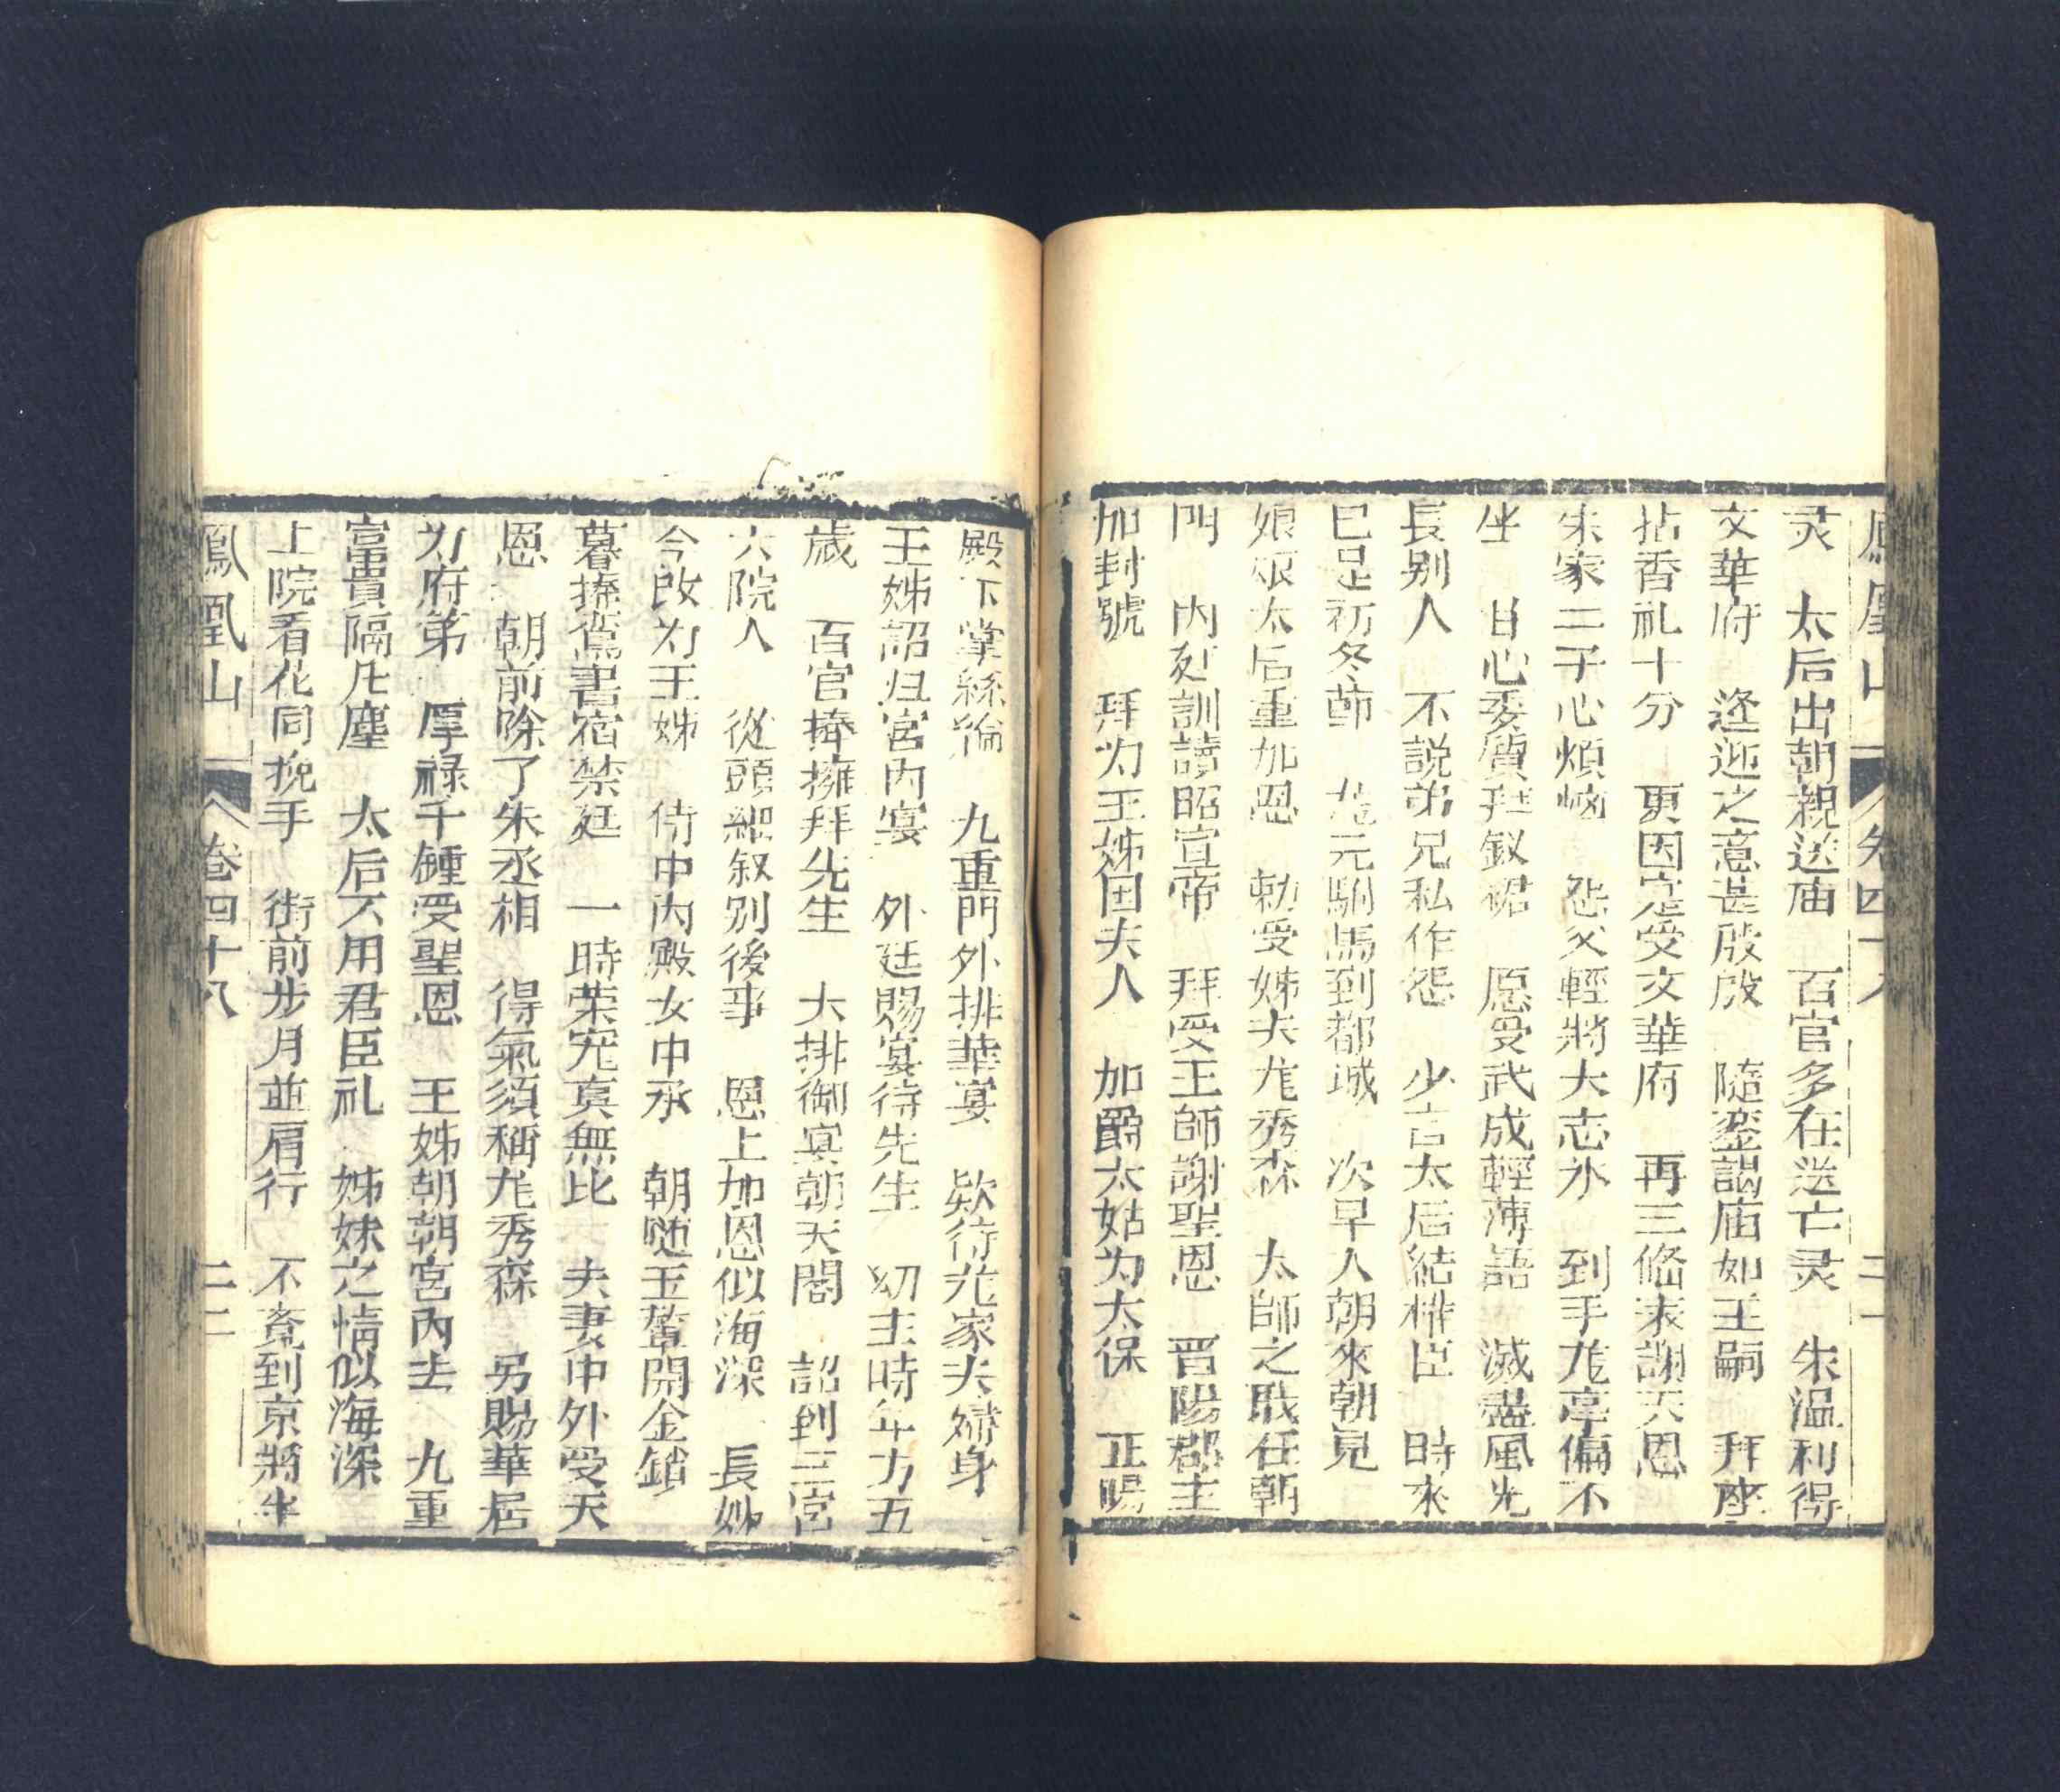 鳳凰山　卷四十八　二十一
灵　太后出朝親送庙　百官多在送亡灵　朱温利得
文華府　逢迎之意甚殷殷　隨鑾謁庙如王嗣　拜座
拈香礼十分　更因定受文華府　再三俻表謝天恩
朱家二子心煩惱　怨父輕將大志氷　到手龙亭偏不
坐　甘心委質拜釵裙　愿受武成輕薄語　滅盡風光
長别人　不説弟兄私作怨　少言太后結權臣　時來
已是初冬節　尨元駙馬到都城　次早人朝來朝見
娘娘太后重加恩　勅受姊夫尨秀森　太師之职任朝
門　内廷訓讀昭宣帝　拜受王師謝聖恩　晋陽郡主
加封號　拜为王姊国夫人　加爵太姑为太保　正陽
殿下掌絲綸　九重門外排華宴　欵待尨家夫婦身
王姊詔归宮内宴　外廷賜宴待先生　幼主時年方五
歲　百官捧擁拜先生　大排御宴朝天閣　詔到三宮
六院人　從頭細叙别後事　恩上加恩似海深　長姊
今改为王姊　侍中内殿女中承　朝随玉輦開金鎖
暮捧鸞書宿禁廷　一時荣寵真無比　夫妻中外受天
恩　朝前除了朱丞相　得氣須稱尨秀森　另賜華居
为府第　厚禄千鍾受聖恩　王姊朝朝宮內去　九重
富貴隔凡塵　太后不用君臣礼　姊妹之情似海深
上院看花同挽手　街前步月並肩行　不覔到京將半
鳳凰山　卷四十八　二十二